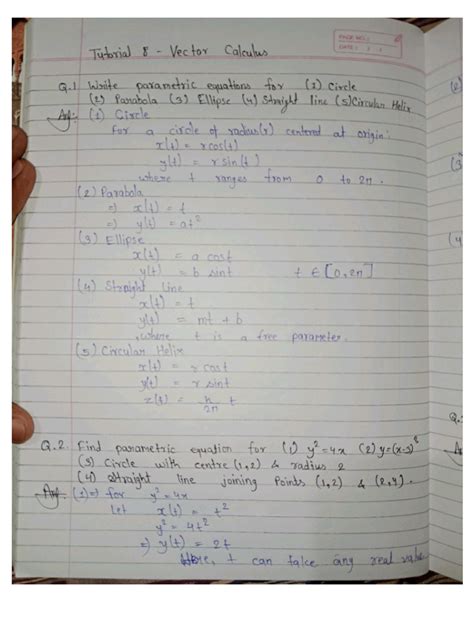 PAGE NO.:
DATE: / /
Tutorial 8 - Vector Calculus
Q.1 Write parametric equations for (1) Circle
(2) Parabola (3) Ellipse (4) Straight line (5) Circular Helix
Ans:- (1) Circle
For a circle of radius(r) centered at origin:
x(t) = r cos(t)
y(t) = r sin(t)
where t ranges from 0 to 2π.
(2) Parabola
⇒ x(t) = t
⇒ y(t) = at²
(3) Ellipse
x(t) = a cost
y(t) = b sint t ∈ [0, 2π]
(4) Straight line
x(t) = t
y(t) = mt + b
, where t is a free parameter.
(5) Circular Helix
x(t) = r cost
y(t) = r sint
z(t) = h/2π t
Q.2. Find parametric equation for (1) y²=4x (2) y=(x-3)²
(3) Circle with centre (1,2) & radius 2
(4) Straight line joining Points (1,2) & (2,4).
Ans:- (1)⇒ for y²=4x
let x(t) = t²
y² = 4t²
⇒ y(t) = 2t
Here, t can take any real value